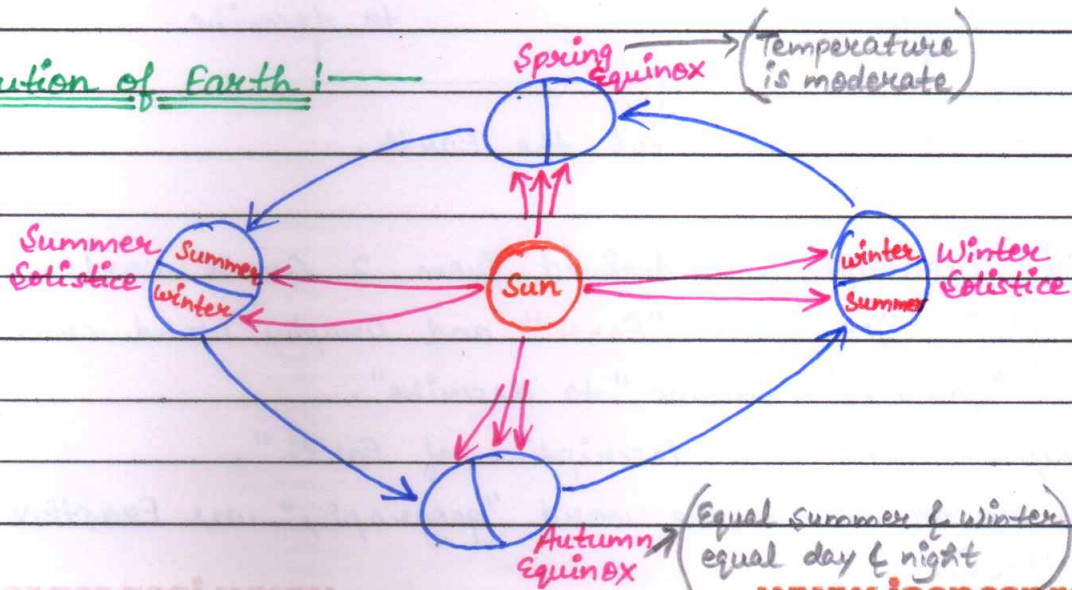 ution of Earth :-
Spring
Equinox
(Temperature
is moderate)
Summer
Solistice
Summer
Winter
Sun
Winter
Summer
Winter
Solistice
Autumn
Equinox
(Equal summer & winter
equal day & night)